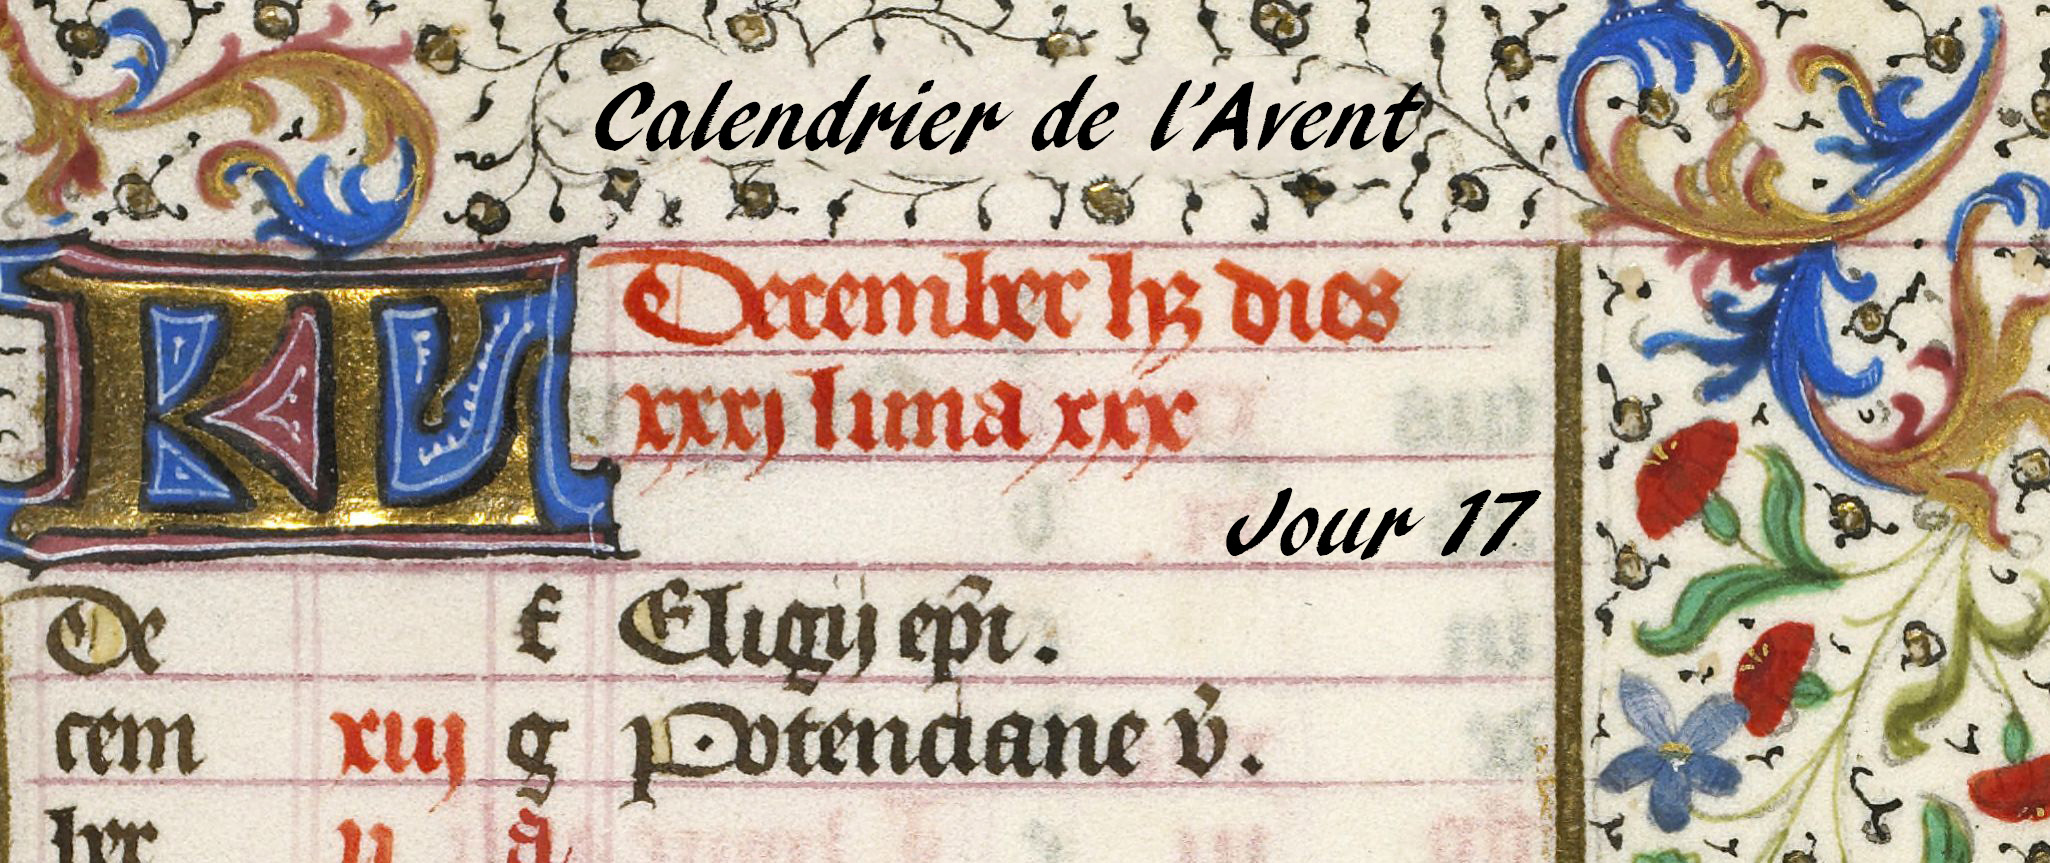 Calendrier de l'Avent
KL December hꝫ dies
xxxj luna xxx
Jour 17
De f Eligij ep̄i.
cem xiij g Potenciane v̄.
ij a